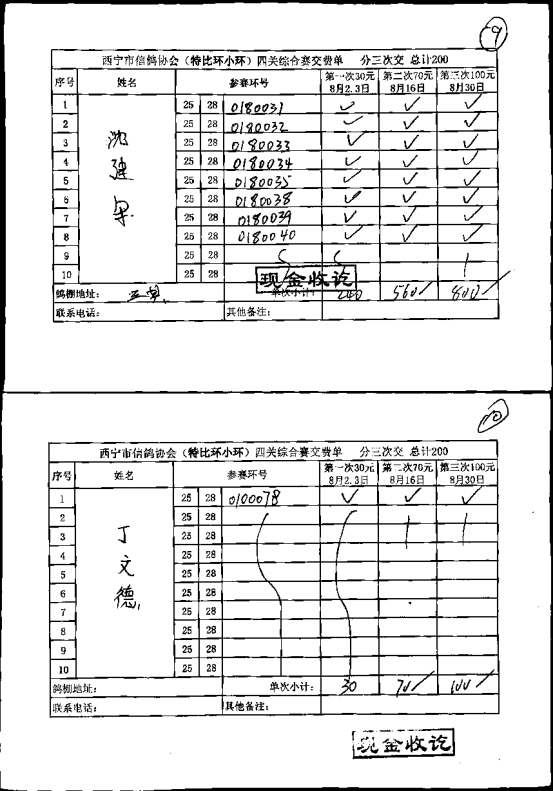 9
西宁市信鸽协会（特比环小环）四关综合赛交费单 分三次交 总计200
序号 姓名 参赛环号 第一次30元 8月2.3日 第二次70元 8月16日 第三次100元 8月30日
1 25 28 0180031 ✓ ✓ ✓
2 25 28 0180032 ✓ ✓ ✓
3 沈 25 28 0180033 ✓ ✓ ✓
4 建 25 28 0180034 ✓ ✓ ✓
5 25 28 0180035 ✓ ✓ ✓
6 25 28 0180038 ✓ ✓ ✓
7 25 28 0180039 ✓ ✓ ✓
8 25 28 0180040 ✓ ✓ ✓
9 25 28
10 25 28
现金收讫
鸽棚地址： 单次小计： 240 560 800
联系电话： 其他备注：
10
西宁市信鸽协会（特比环小环）四关综合赛交费单 分三次交 总计200
序号 姓名 参赛环号 第一次30元 8月2.3日 第二次70元 8月16日 第三次100元 8月30日
1 25 28 0100078 ✓ ✓ ✓
2 25 28
3 丁 25 28
4 文 25 28
5 德 25 28
6 25 28
7 25 28
8 25 28
9 25 28
10 25 28
鸽棚地址： 单次小计： 30 70 100
联系电话： 其他备注：
现金收讫